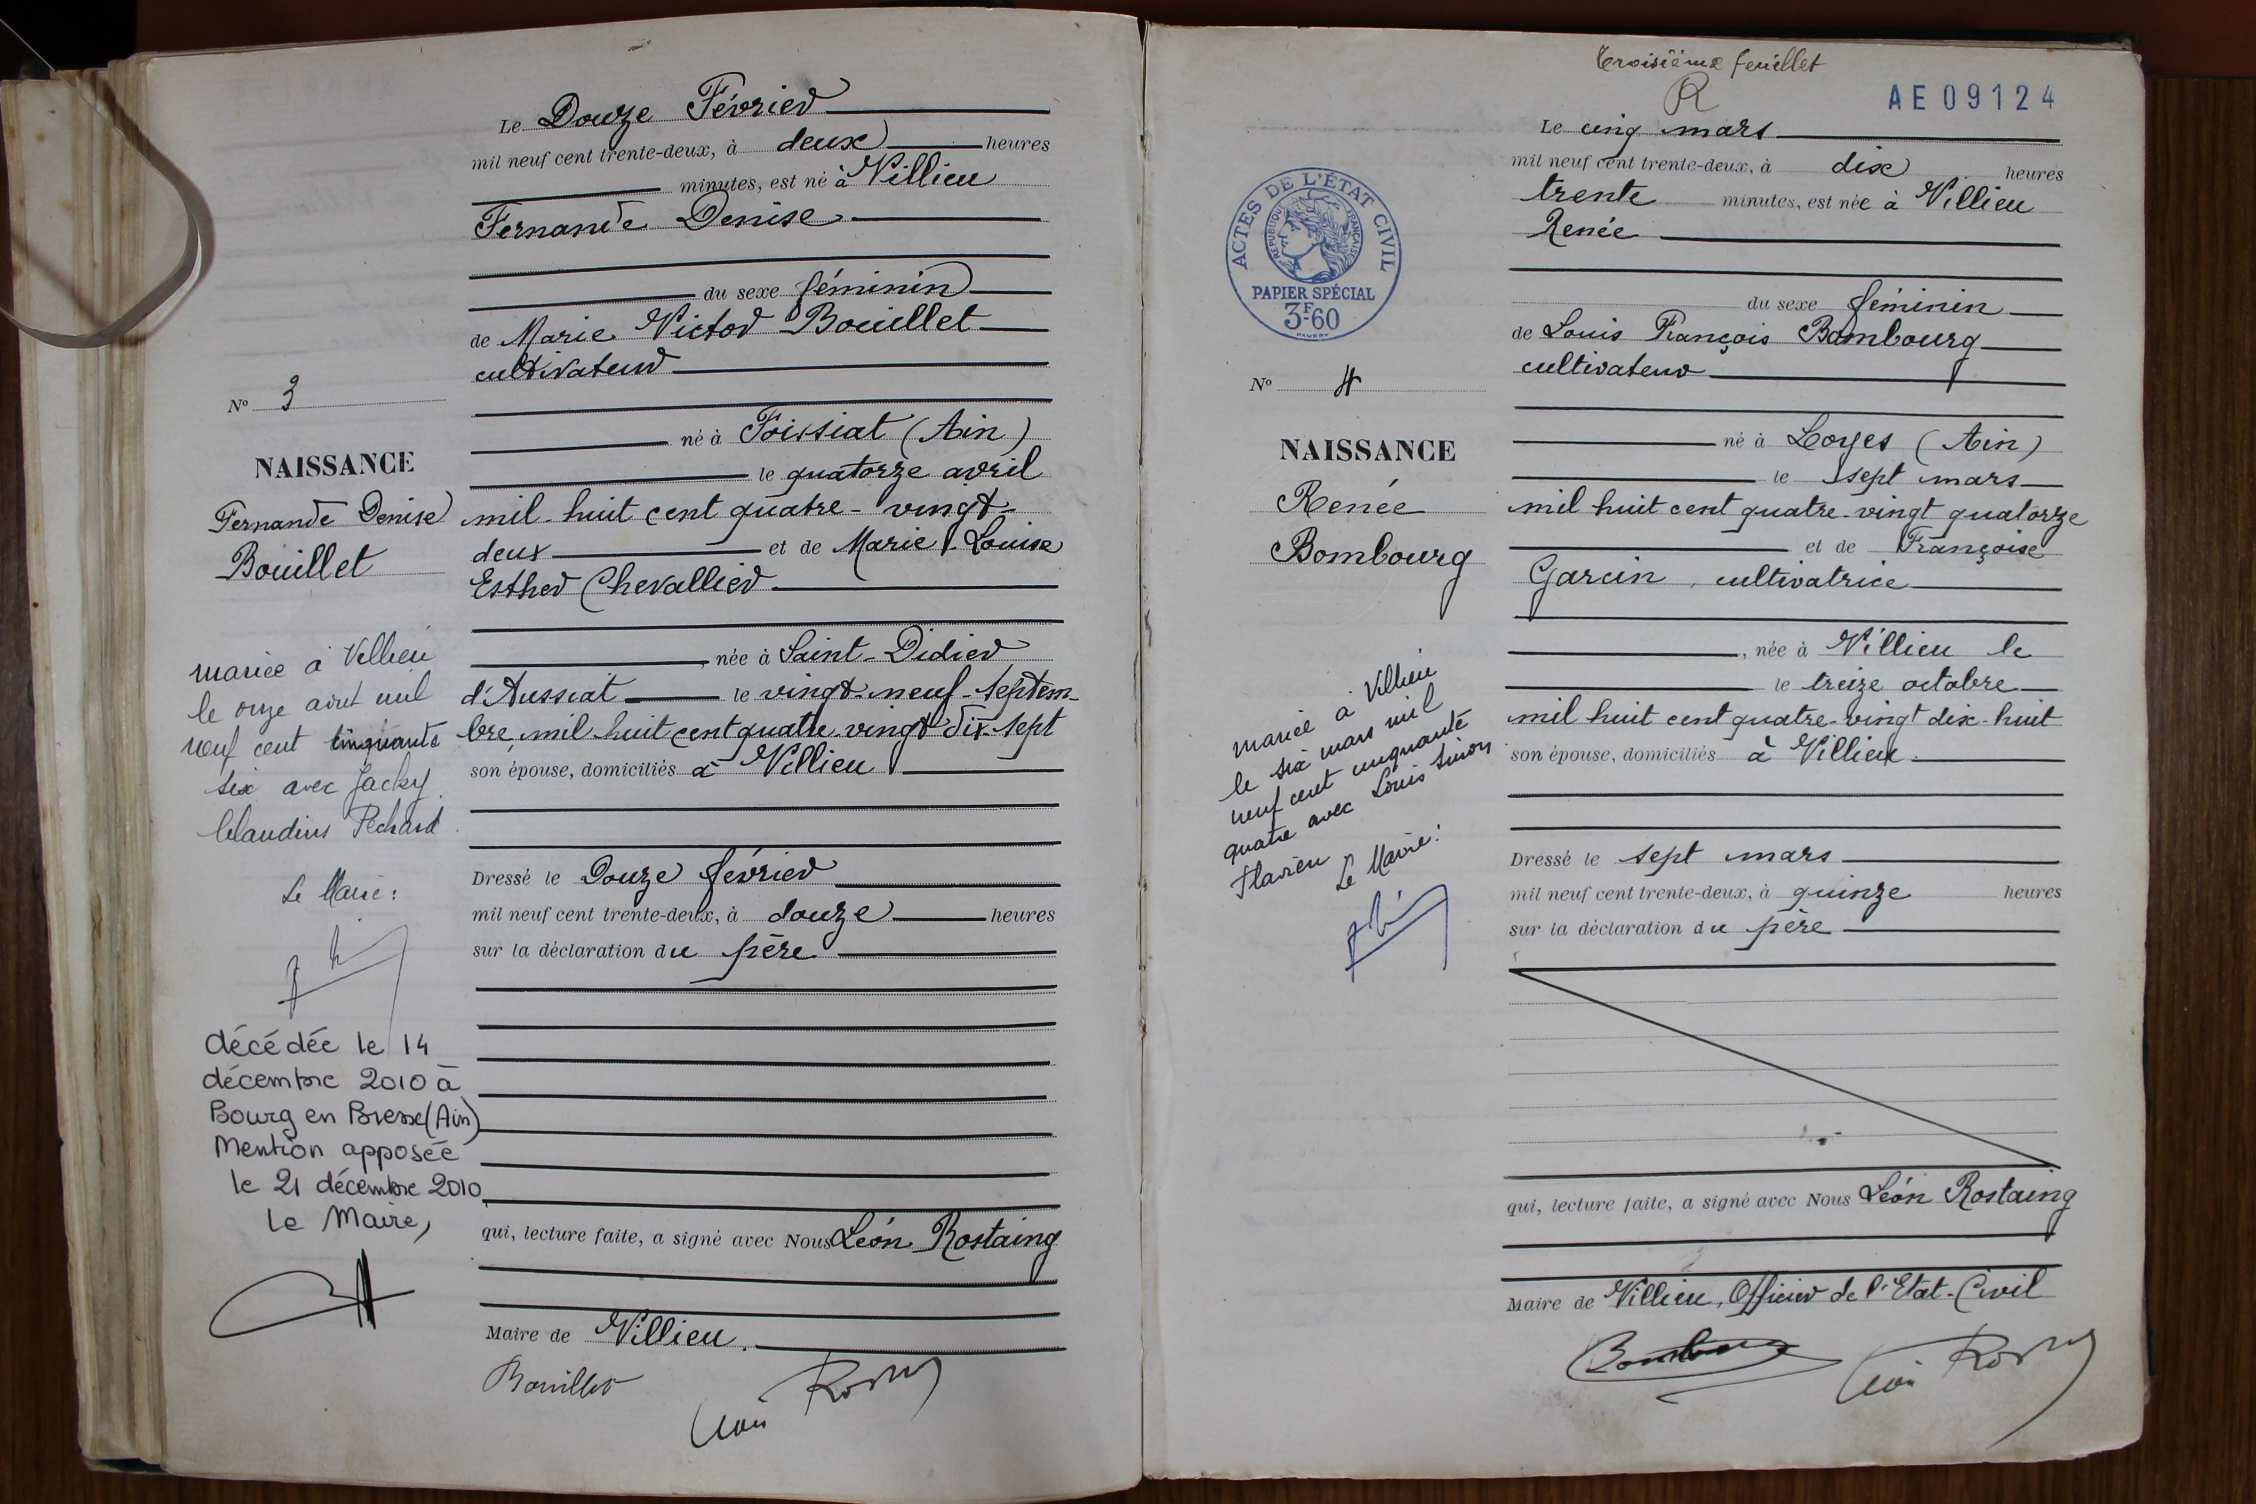 Le Douze Février
mil neuf cent trente-deux, à deux heures
minutes, est né à Villieu
Fernande Denise
du sexe féminin
de Marie Victor Bouillet
cultivateur
né à Foissiat (Ain)
le quatorze avril
mil huit cent quatre-vingt-
deux et de Marie Louise
Esther Chevallier
née à Saint-Didier
d'Aussiat le vingt-neuf septem-
bre mil huit cent quatre-vingt-dix-sept
son épouse, domiciliés à Villieu
Dressé le Douze février
mil neuf cent trente-deux, à douze heures
sur la déclaration du père
qui, lecture faite, a signé avec Nous Léon Rostaing
Maire de Villieu.
Bouillet
Nº 3
NAISSANCE
Fernande Denise
Bouillet
mariée à Villieu
le onze août mil
neuf cent cinquante
six avec Jacky
Claudius Pechard
Le Maire :
décédée le 14
décembre 2010 à
Bourg en Bresse (Ain)
Mention apposée
le 21 décembre 2010
Le Maire,
Troisième feuillet
R
AE 09124
Le cinq mars
mil neuf cent trente-deux, à dix heures
trente minutes, est née à Villieu
Renée
du sexe féminin
de Louis François Bombourg
cultivateur
né à Loyes (Ain)
le sept mars
mil huit cent quatre-vingt quatorze
et de Françoise
Garcin, cultivatrice
, née à Villieu le
le treize octobre
mil huit cent quatre-vingt dix-huit
son épouse, domiciliés à Villieu.
Dressé le sept mars
mil neuf cent trente-deux, à quinze heures
sur la déclaration du père
qui, lecture faite, a signé avec Nous Léon Rostaing
Maire de Villieu, Officier de l'Etat-Civil
Bombourg
ACTES DE L'ÉTAT CIVIL
RÉPUBLIQUE FRANÇAISE
PAPIER SPÉCIAL
3F-60
Nº 4
NAISSANCE
Renée
Bombourg
mariée à Villieu
le six mars mil
neuf cent cinquante
quatre avec Louis Simon
Flavien
Le Maire :